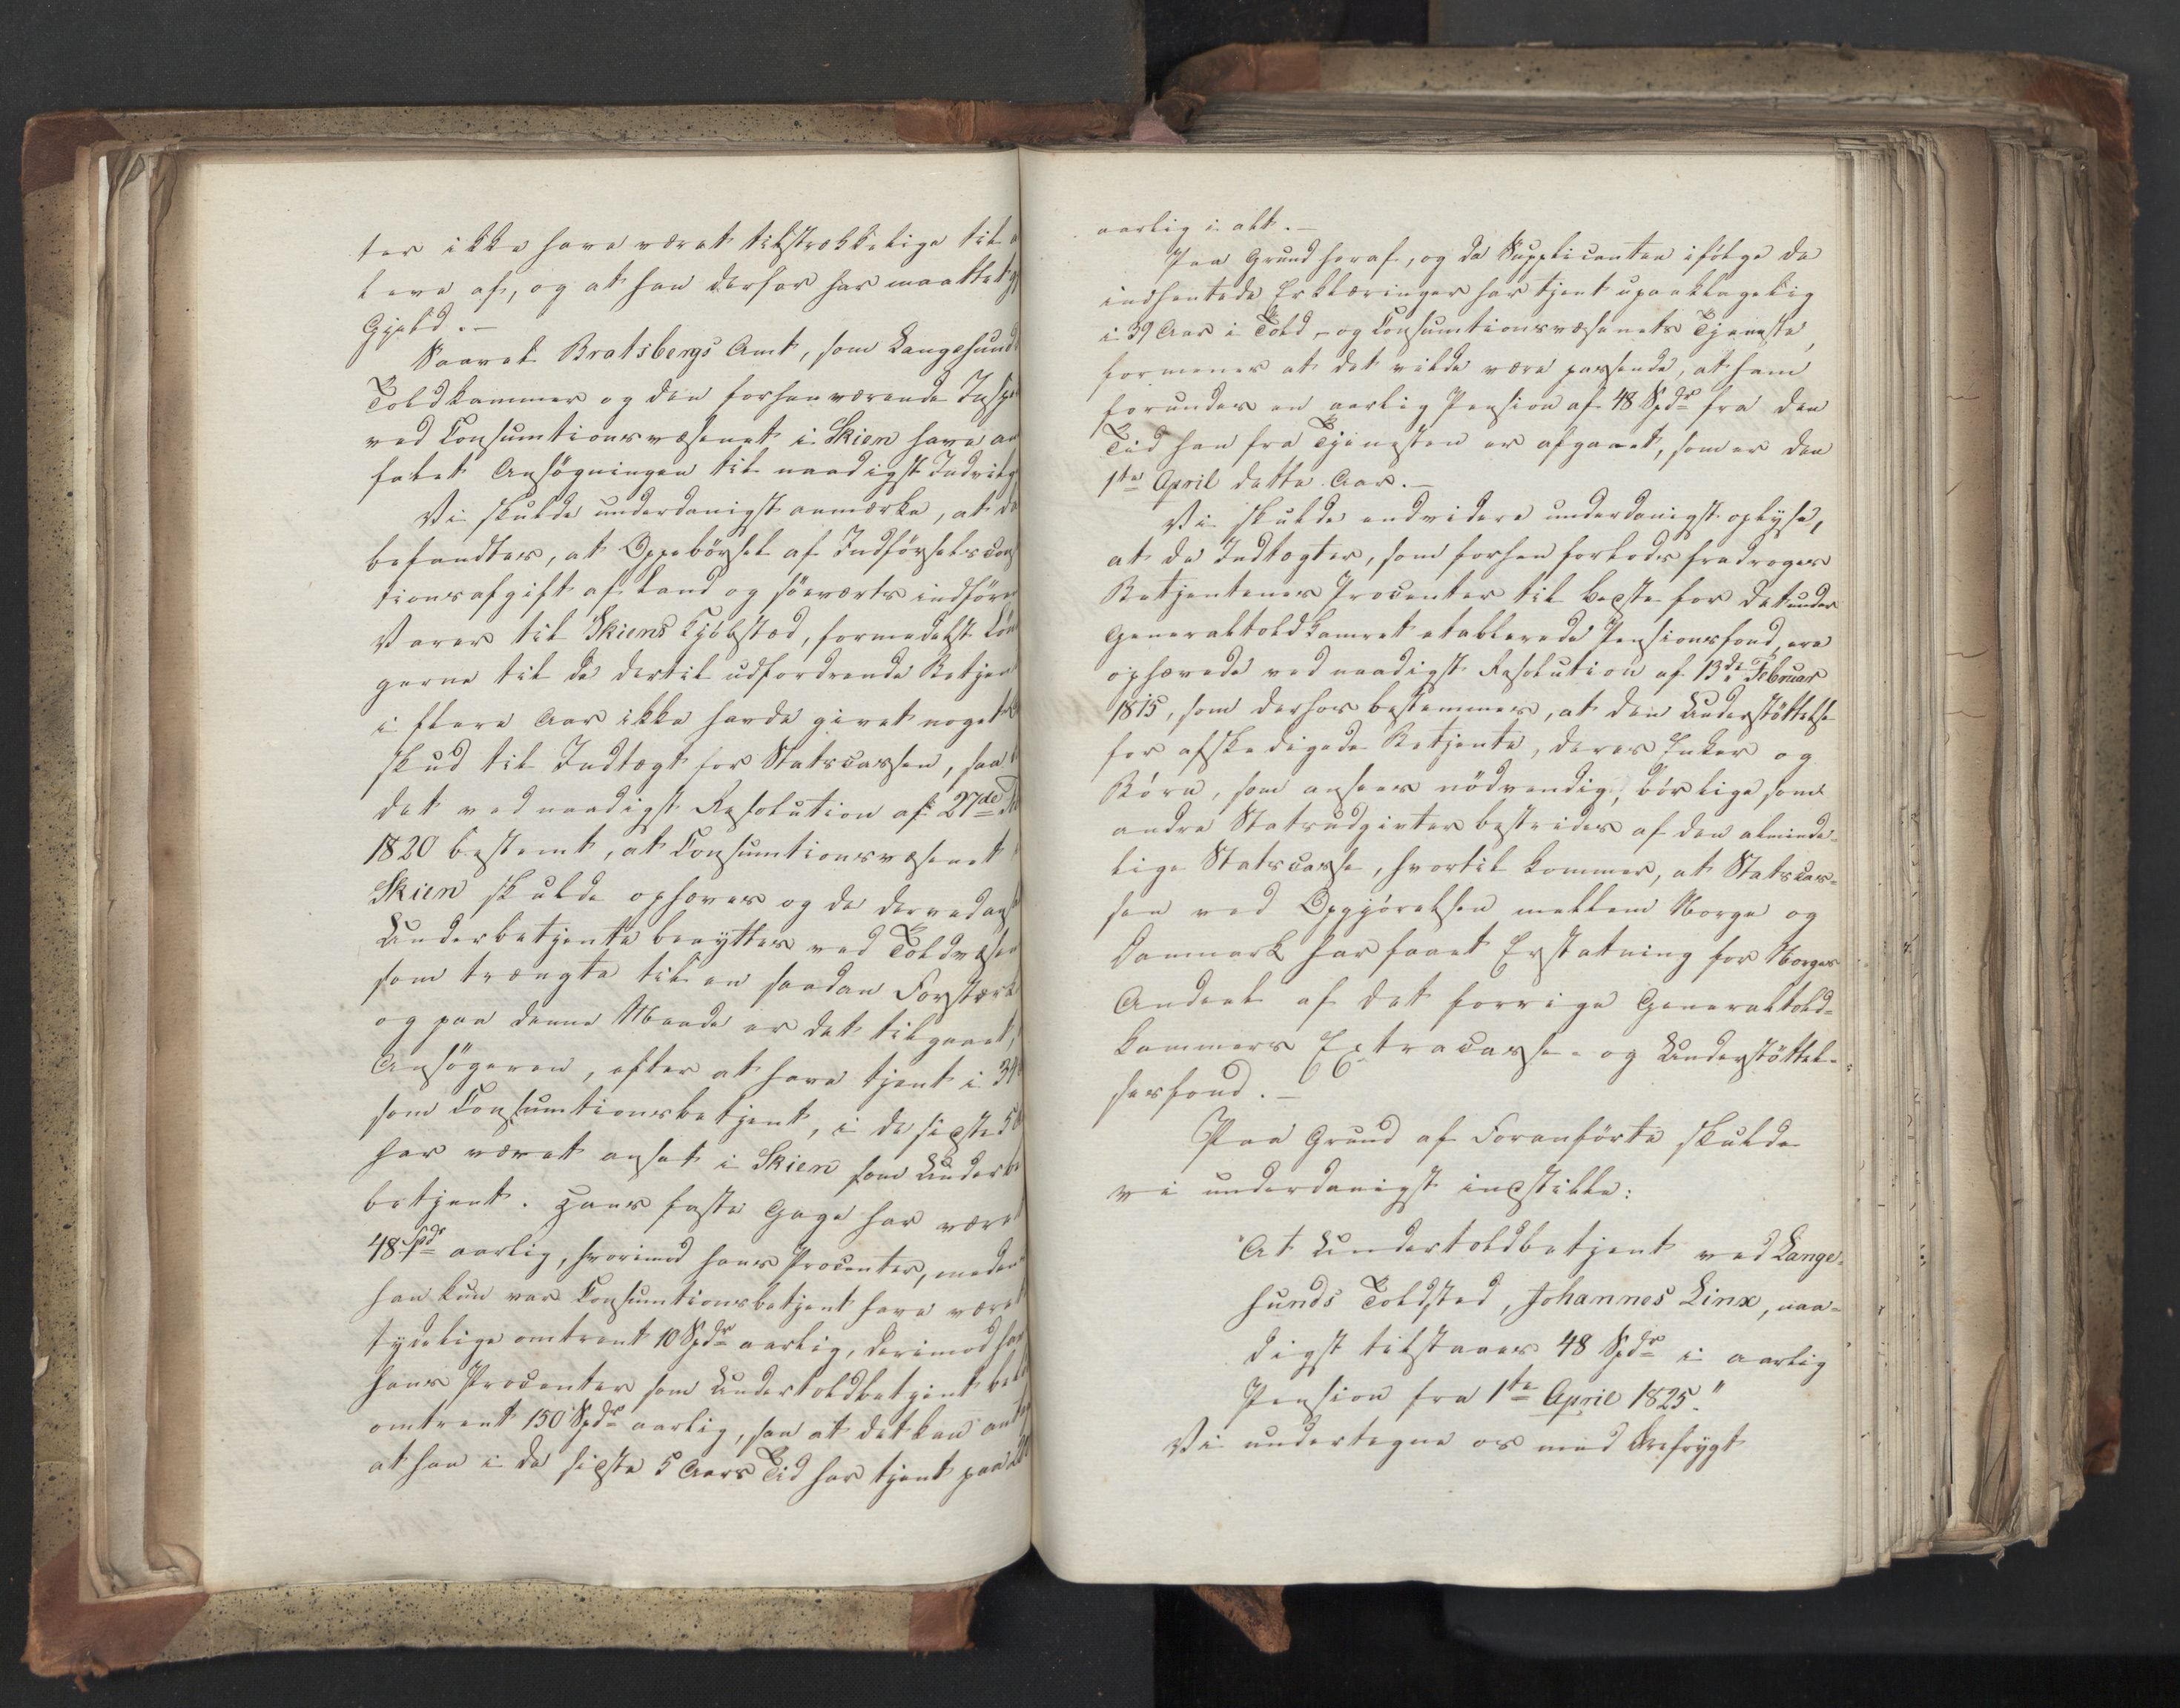 ter ikke have været tilstrækkelige til
leve af, og at han derfor har maattet
Gjeld. —
Saavel Bratsbergs Amt, som Langesund
Toldkammer og den forhenværende Insp
ved Consumtionsvæsenet i Skien have an
falet Ansøgningen til naadigst Indvilg
Vi skulde underdanigst anmærke, at da
befandtes, at Oppebörsel af Indförselscons
tionsafgift af land og söeværts indföre
Varer til Skiens Kjöbstad, formedelst Lön
gerne til de dertil udfordrende Betjen
i flere Aar ikke havde givet noget
skud til Indtægt for Statscassen, saa
det ved naadigst Resolution af 27de
1820 bestemt, at Consumtionsvæsenet
Skien skulde ophæves og de derved ans
Underbetjente benyttes ved Toldvæsen
som trængte til en saadan Forstærk
og paa denne Maade er det tilgaaet,
Ansögeren, efter at have tjent i 34
som Consumtionsbetjent, i de sidste 5
har været ansat i Skien som Under
betjent. Hans faste Gage har været
48 Spdr aarlig, hvorimod hans Procenter, meden
han kun var Consumtionsbetjent have været
tydelige omtrent 10 Spdr aarlig, derimod har
hans Procenter som Undertoldbetjent
omtrent 150 Spdr aarlig, saa at det kan
at han i de sidste 5 Aars Tid har tjent paa
aarlig i alt. —
Paa Grund heraf, og da Supplicanten ifölge de
indhentede Erklæringer har tjent upaaklagelig
i 39 Aar i Told- og Consumtionsvæsenets Tjeneste,
formenes at det vilde være passende, at ham
forundes en aarlig Pension af 48 Spdr fra den
Tid han fra Tjenesten er afgaaet, som er den
1ste April dette Aar. —
Vi skulde endvidere underdanigst oplyse,
at de Indtægter, som forhen forlods fradroges
Betjentenes Procenter til beste for det under
Generaltoldkamret etablerede Pensionsfond, ere
ophævede ved naadigst Resolution af 13de Februar
1815, som derhos bestemmer, at den Understöttelse
for afskedigede Betjente, deres Enker og
Börn, som ansees nödvendig, bör lige som
andre Statsudgivter bestrides af den alminde-
lige Statscasse, hvortil kommer, at Statscas-
sen ved Opgjörelsen mellem Norge og
Danmark har faaet Erstatning for Norges
Andeel af det forrige Generaltold-
kammers Extracasse- og Understöttel-
sesfond. —
Paa Grund af Foranförte skulde
vi underdanigst indstille:
"At Undertoldbetjent ved Lange-
sunds Toldsted, Johannes Linx, naa-
digst tilstaaes 48 Spdr i aarlig
Pension fra 1ste April 1825."
Vi undertegne os med Ærefrygt